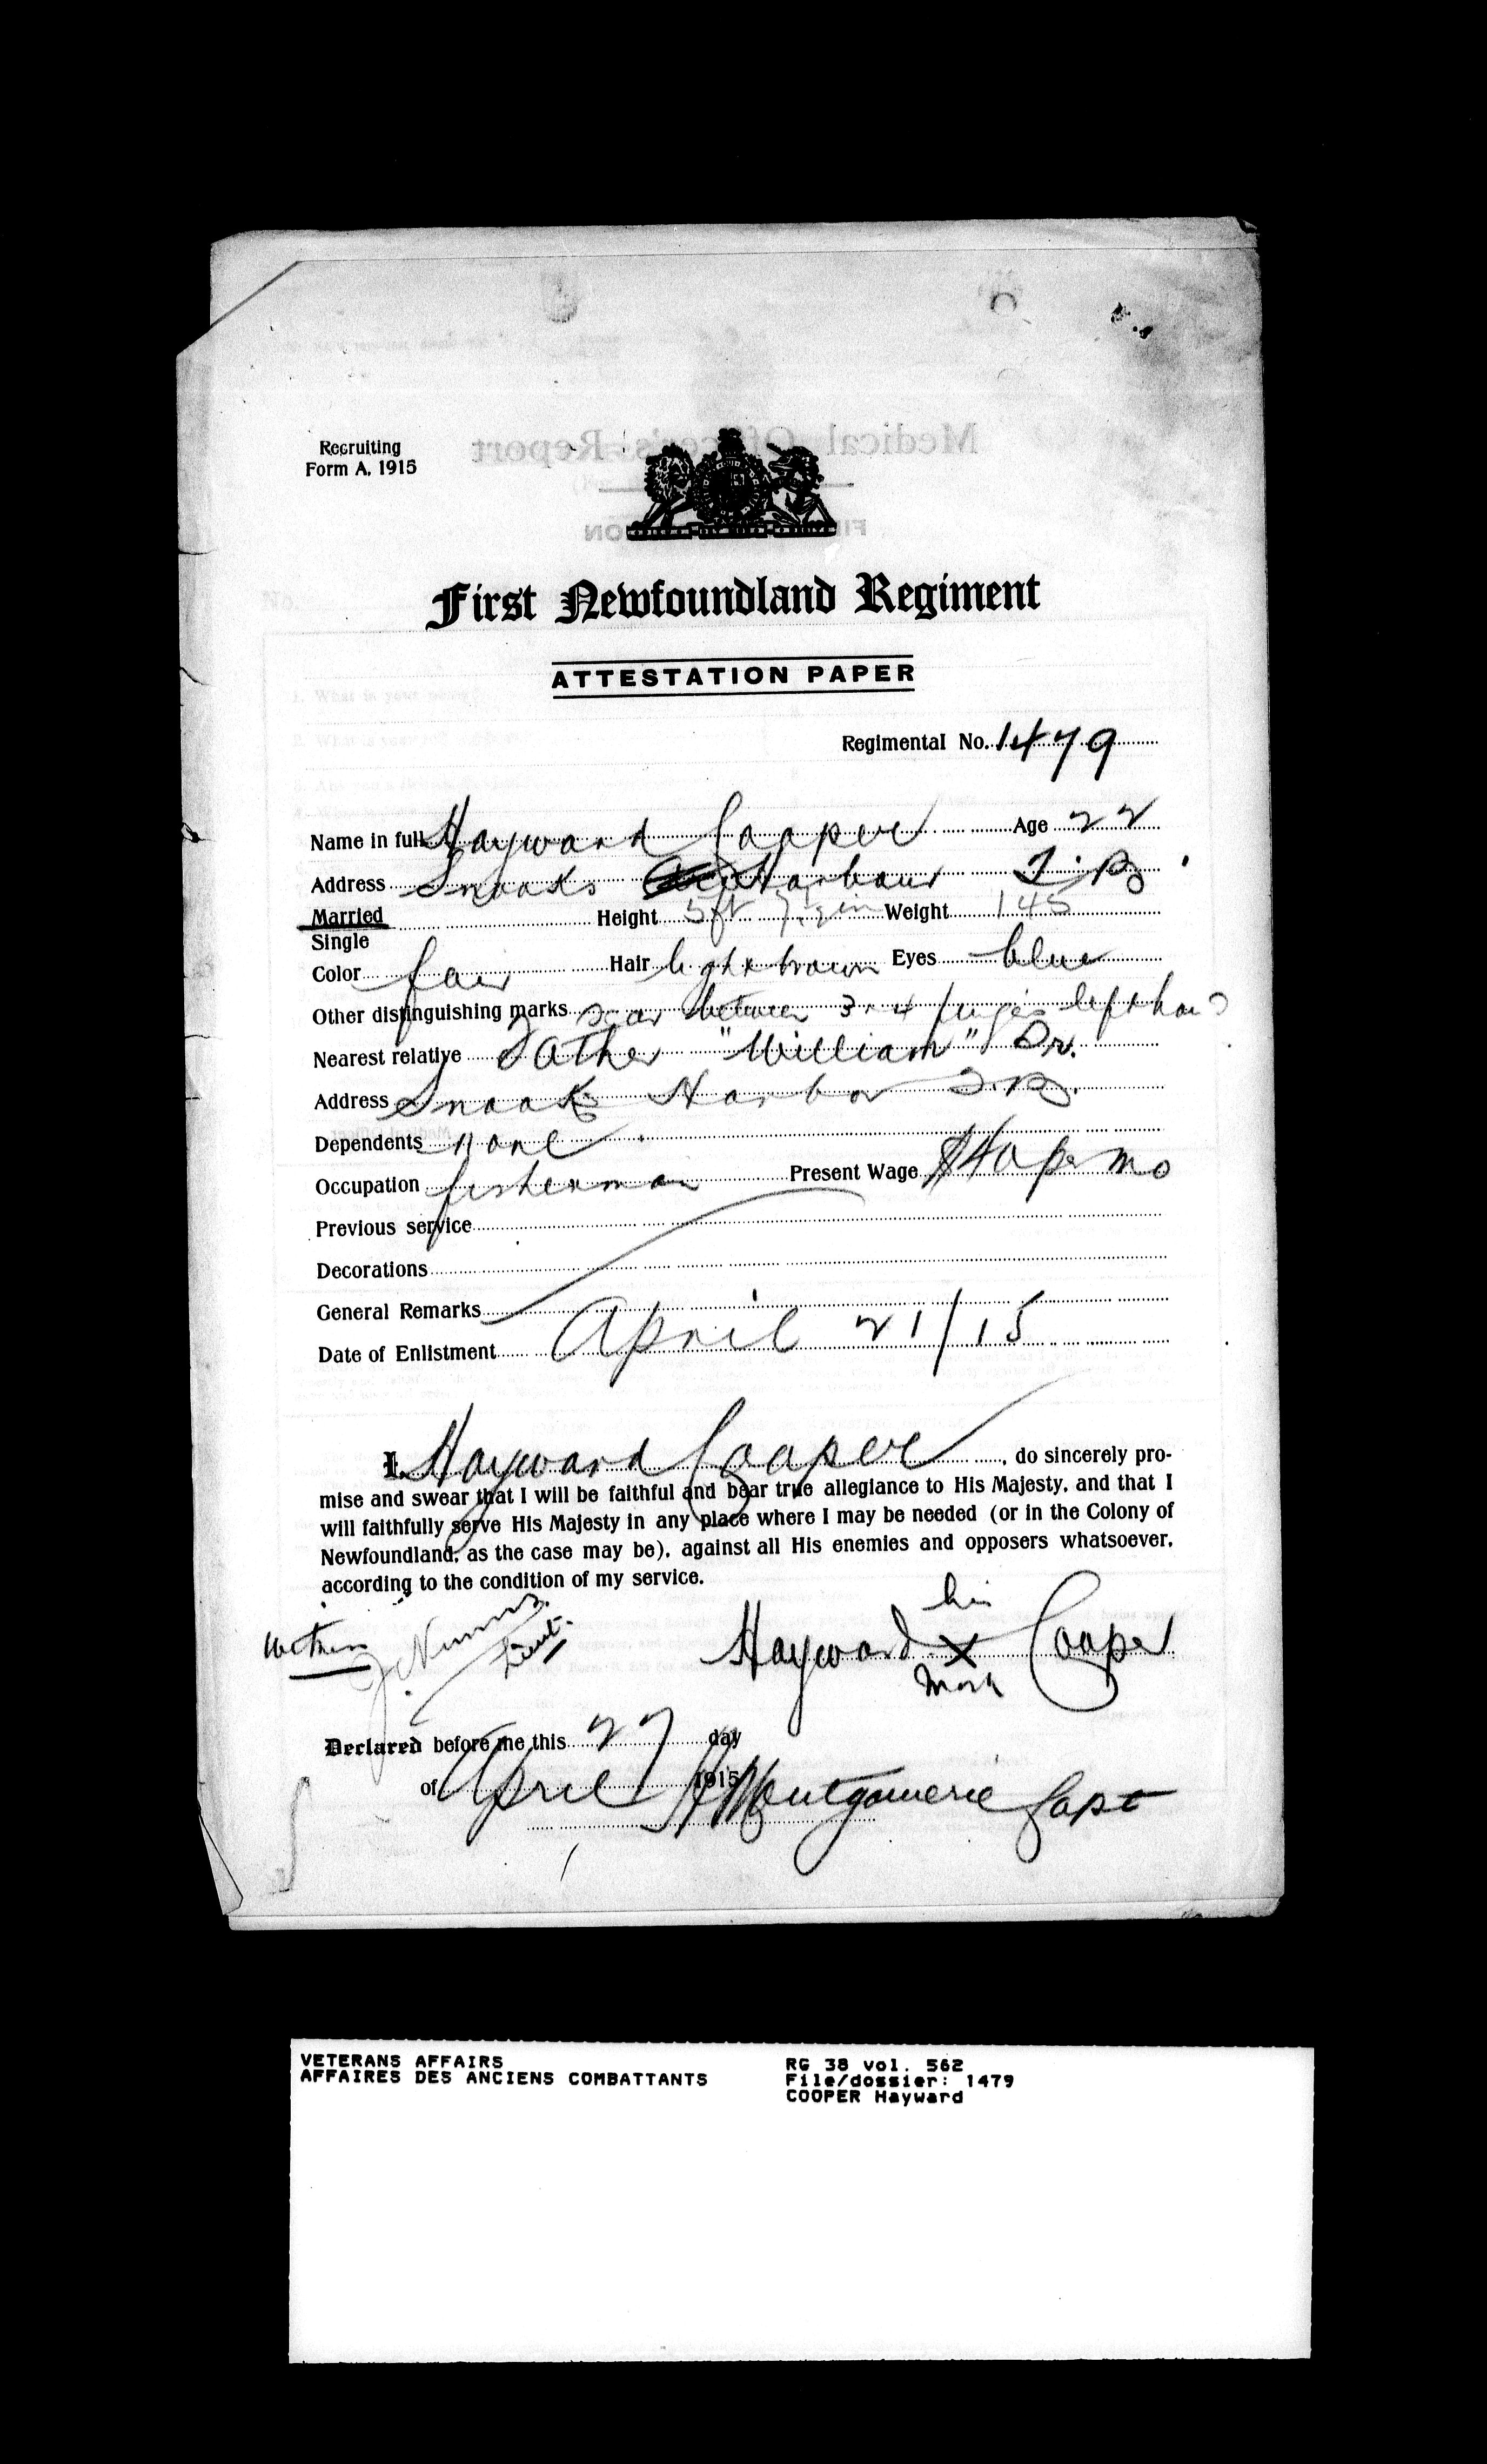 Recruiting
Form A. 1915
Medical Officer's Report
First Newfoundland Regiment
ATTESTATION PAPER
Regimental No. 1479
Name in full Hayward Cooper Age 22
Address Snooks Harbour T.B.
Married Height 5ft 7 in Weight 145
Single
Color fair Hair light brown Eyes blue
Other distinguishing marks scar between 3 & 4 finger left hand
Nearest relative Father "William" Sr.
Address Snooks Harbor T.B.
Dependents none
Occupation fisherman Present Wage $40 per mo
Previous service
Decorations
General Remarks
Date of Enlistment April 21/15
I, Hayward Cooper, do sincerely pro-
mise and swear that I will be faithful and bear true allegiance to His Majesty, and that I
will faithfully serve His Majesty in any place where I may be needed (or in the Colony of
Newfoundland, as the case may be), against all His enemies and opposers whatsoever,
according to the condition of my service.
his
Witness J. Nunns. Lieut. Hayward X Cooper
mark
Declared before me this 27 day
of April 1915 Montgomerie Capt
VETERANS AFFAIRS RG 38 vol. 562
AFFAIRES DES ANCIENS COMBATTANTS File/dossier: 1479
COOPER Hayward